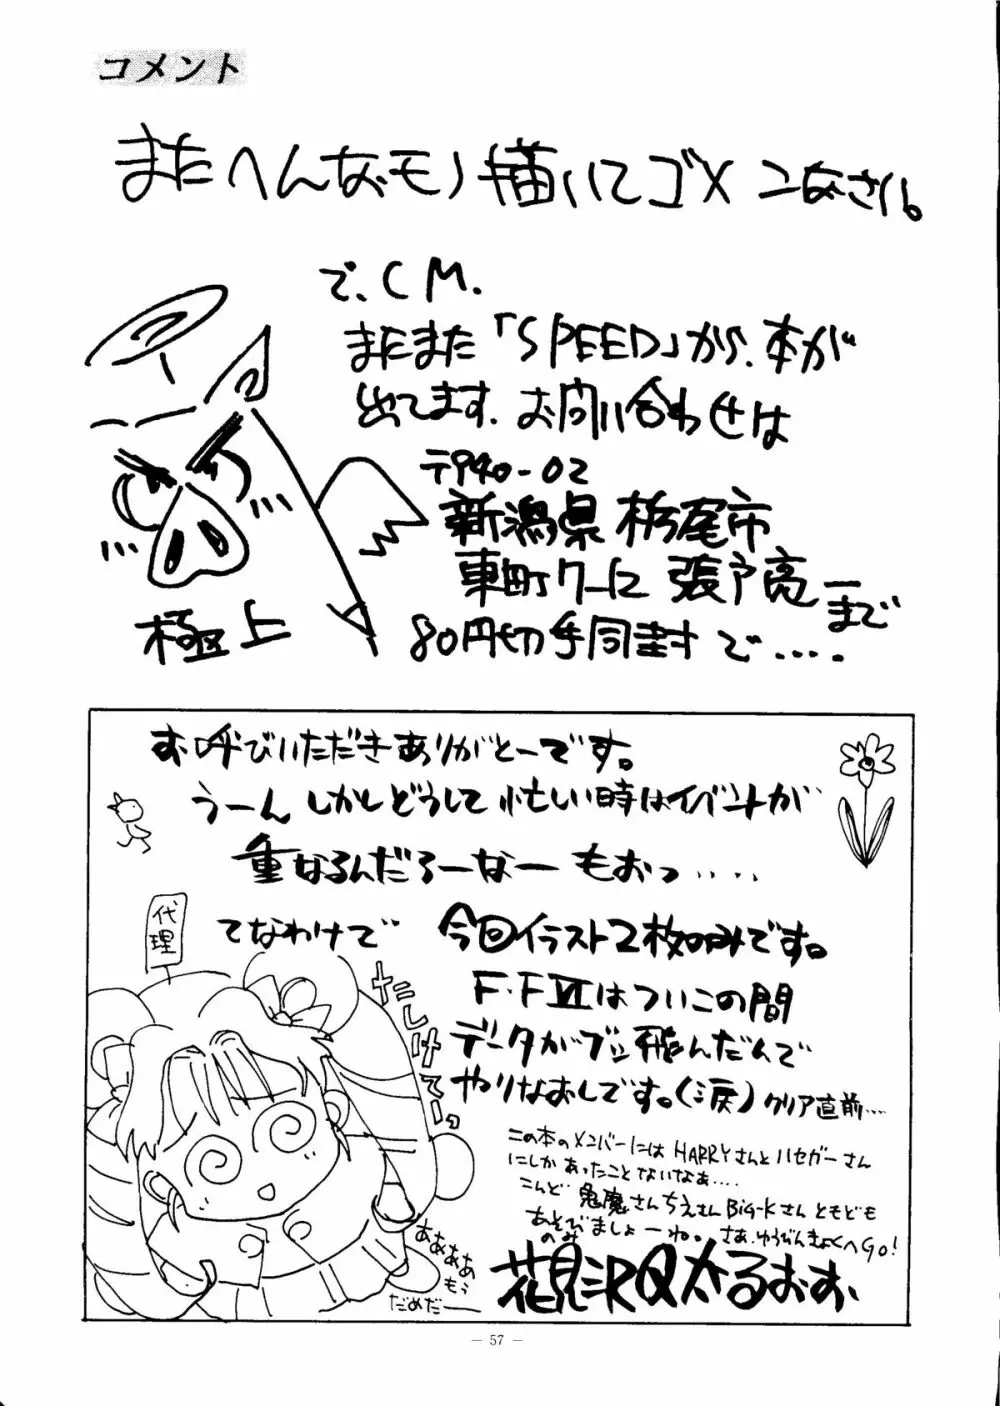 コメント
またへんなモノ描いてゴメンなさい。
で、CM.
またまた「SPEED」から、本が
出てます、お問い合わせは
〒940-02
新潟県 栃尾市
東町7-12 張戸亮一まで
80円切手同封で....
極上
お呼びいただきありがとーです。
うーん しかしどうして忙しい時はイベントが
重なるんだろーなー もおっ....
代理
てなわけで 今回イラスト2枚のみです。
F・FⅥはついこの間
データがブッ飛んだんで
やりなおしです。(涙) クリア直前....
たしけてーっ
この本のメンバーには HARRYさんとハセガーさん
にしか あったことないなぁ....
こんど 鬼魔さん ちえさん Big-Kさん ともども
あそびましょーね。 さあ、ゆうびんきょくへGo!
のみ
ああああ
もう
だめだー
花見沢Q太るおすか
— 57 —